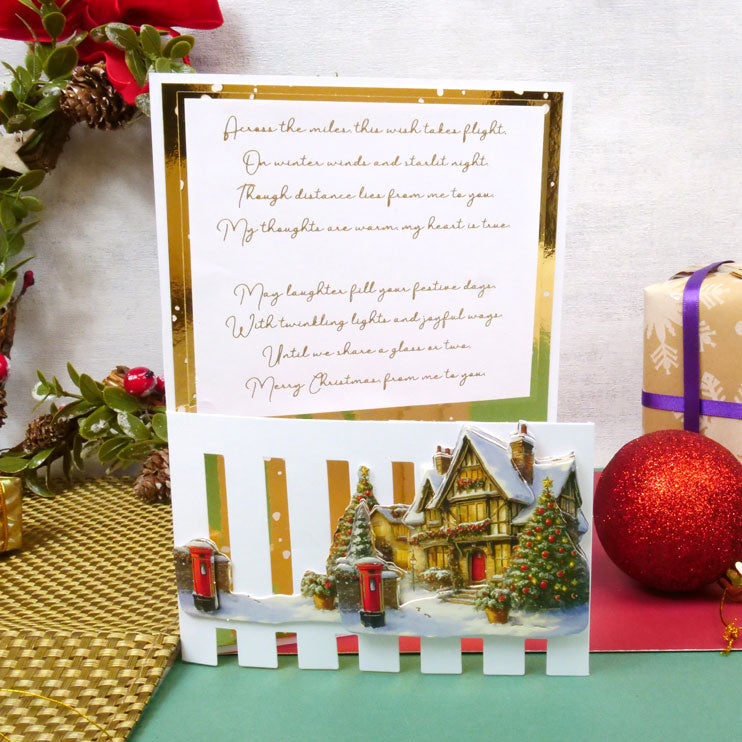 Across the miles, this wish takes flight,
On winter winds and starlit night.
Though distance lies from me to you,
My thoughts are warm, my heart is true.
May laughter fill your festive days,
With twinkling lights and joyful ways.
Until we share a glass or two,
Merry Christmas, from me to you.